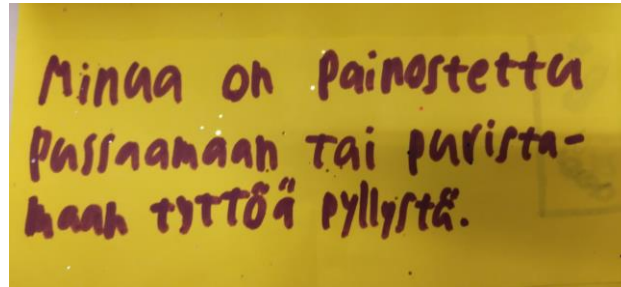 Minua on painostettu
pussaamaan tai purista-
maan tyttöä pyllystä.